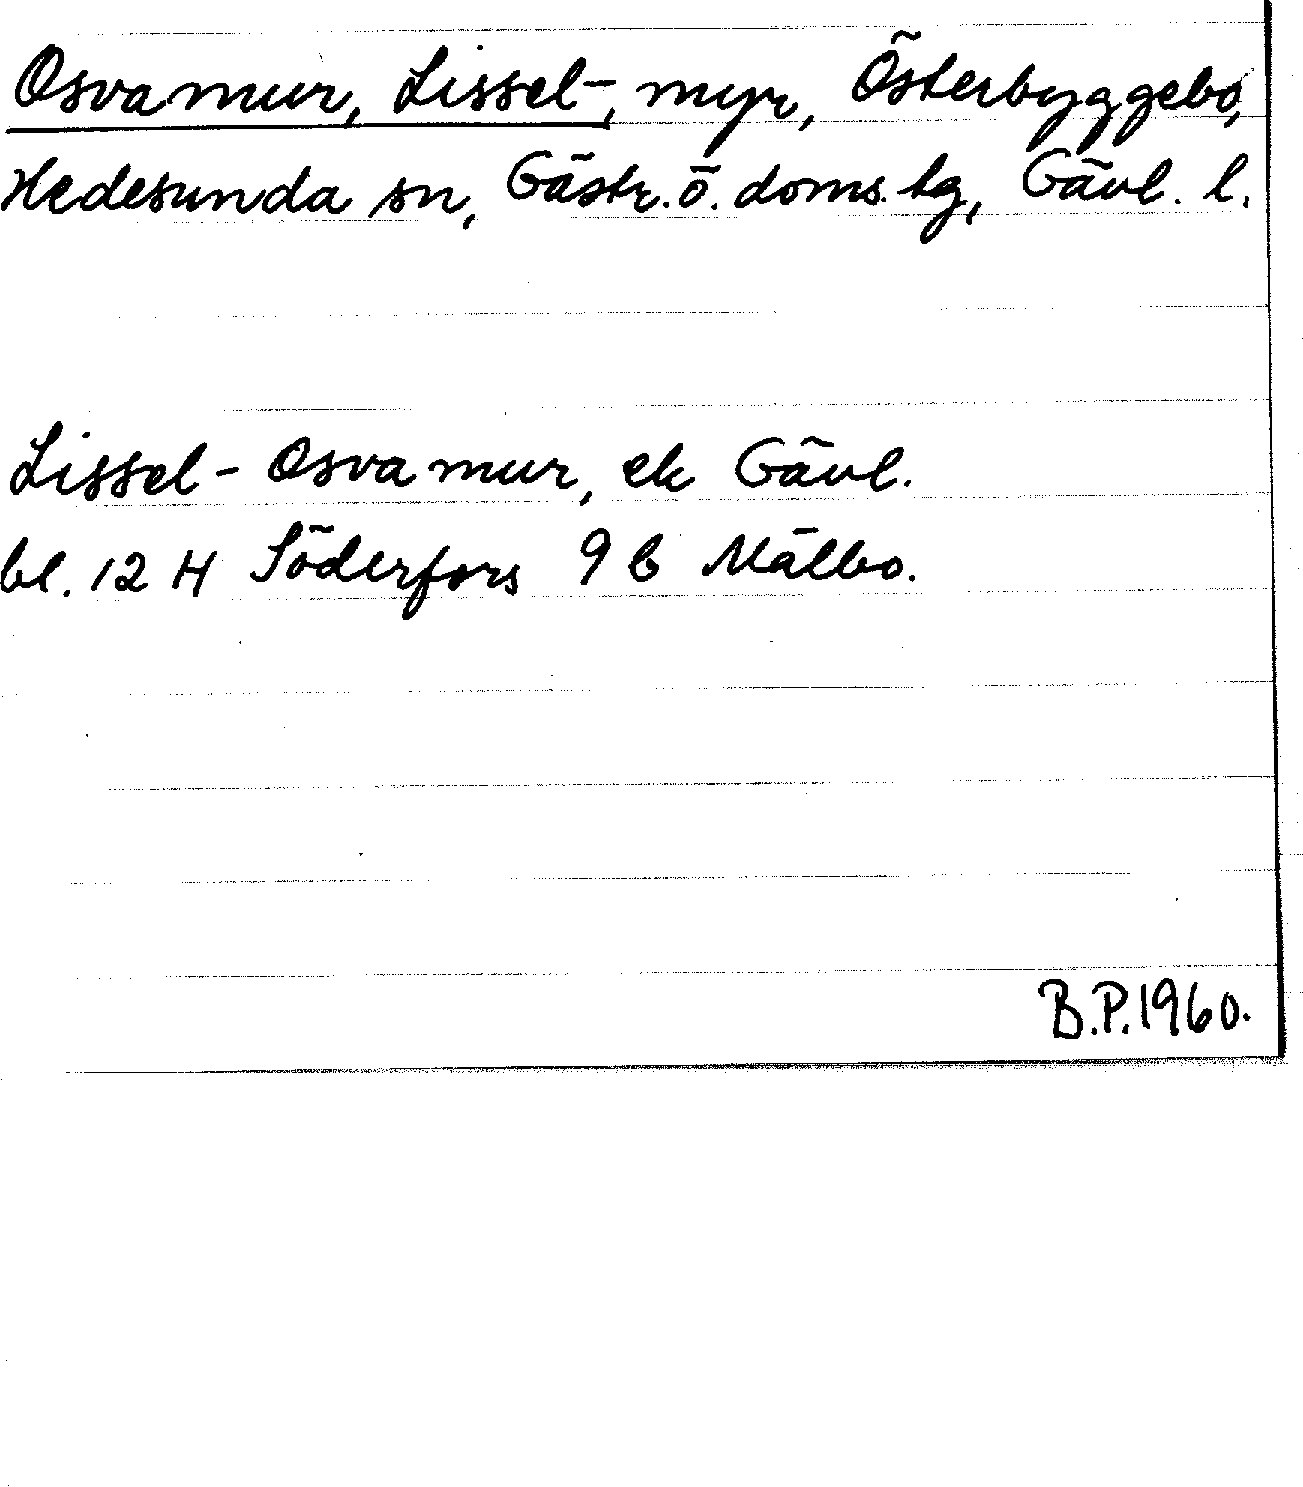 Osvamur, Lissel-, myr, Österbyggebo,
Hedesunda sn, Gästr. ö. doms. tg, Gävl. l.
Lissel-Osvamur, ek Gävl.
bl. 12 H Söderfors 9 b Mälbo.
B.P. 1960.